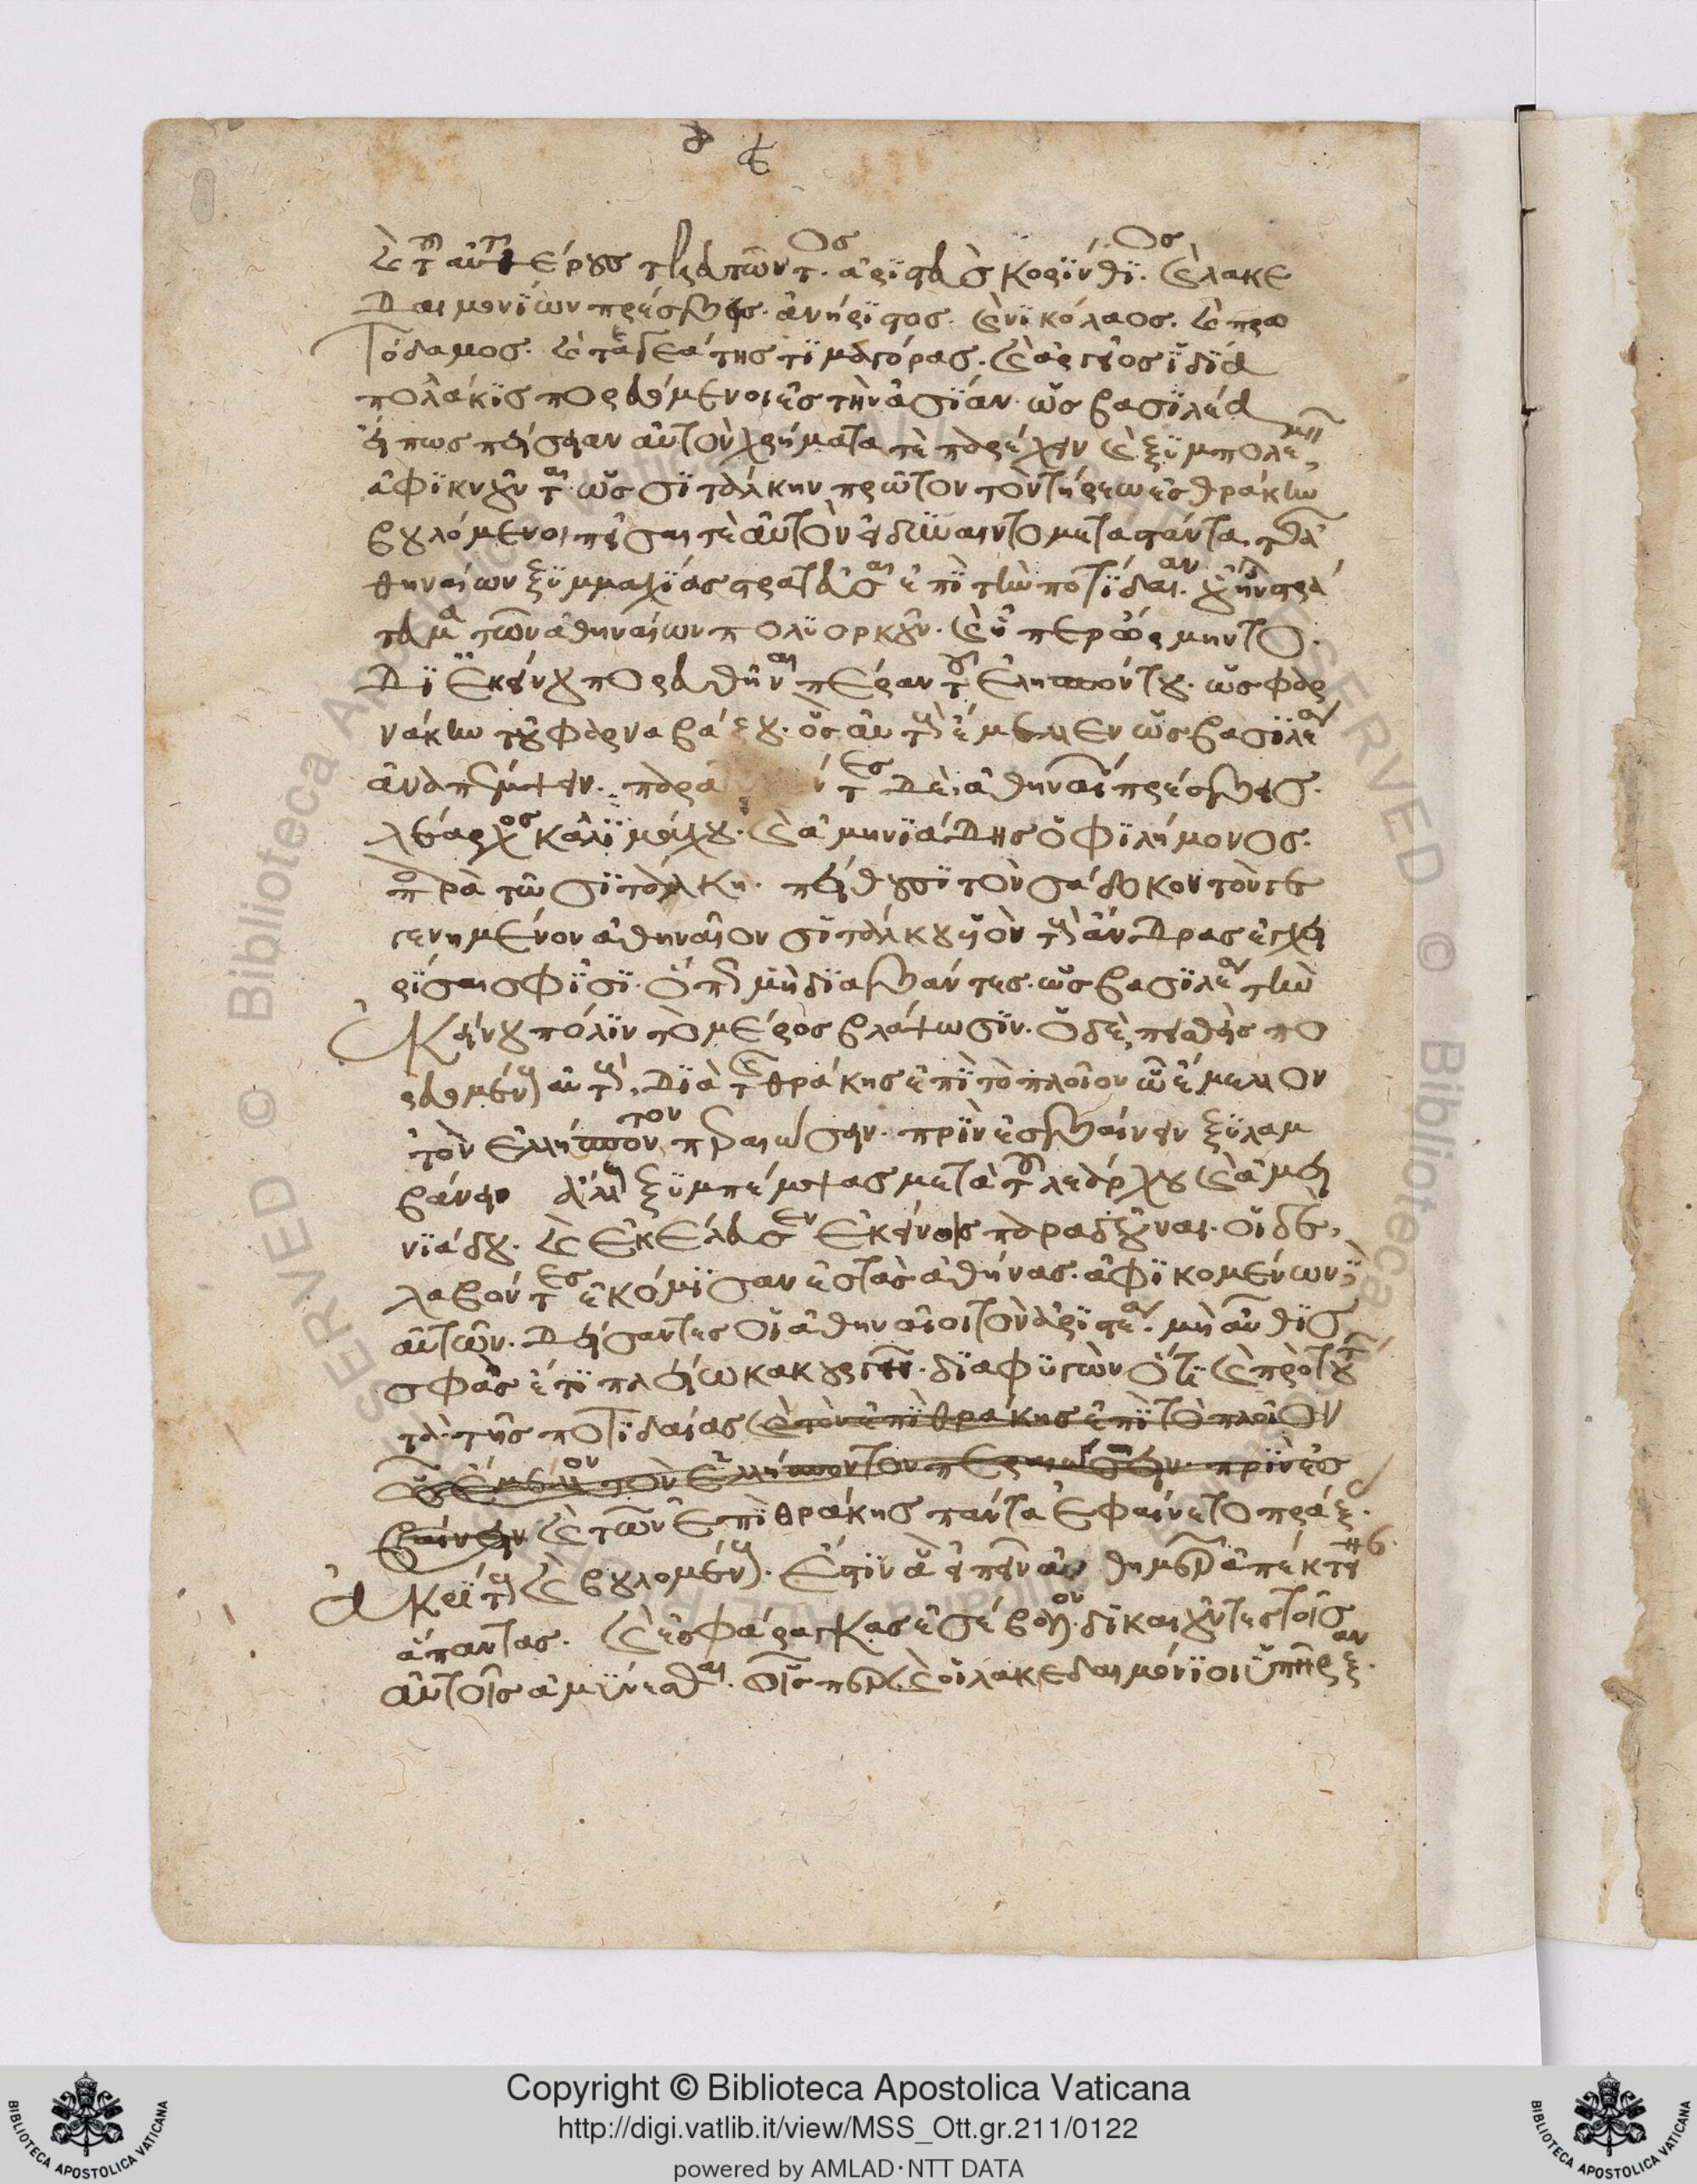 καὶ τοῦ αὐτοῦ θέρους τελευτῶντος. ἀριστεὺς κορίνθιος. καὶ λακε
δαιμονίων πρέσβεις. ἀνήριστος. καὶ νικόλαος. καὶ πρα
τόδαμος. καὶ τεγεάτης τιμαγόρας. καὶ ἀργεῖος ἰδία
πολλάκις πορευόμενοι ἐς τὴν ἀσίαν. ὡς βασιλέα
εἴ πως πείσειαν αὐτὸν χρήματά τε παρέχειν καὶ ξυμπολεμεῖν,
ἀφικνοῦνται ὡς σιτάλκην πρῶτον τὸν τήρεω ἐς θράκην
βουλόμενοι πεῖσαί τε αὐτὸν εἰ δύναιντο μεταστάντα. τῆς ἀ
θηναίων ξυμμαχίας στρατεῦσαι ἐπὶ τὴν ποτίδαιαν. οὗ ἦν στρά
τευμα τῶν ἀθηναίων πολιορκοῦν. καὶ ᾗπερ ὥρμηντο.
δι' ἐκείνου πορευθῆναι πέραν τοῦ ἑλλησπόντου. ὡς φαρ
νάκην τοῦ φαρναβάζου. ὃς αὐτοὺς ἔμελλεν ὡς βασιλέα
ἀναπέμψειν. παρα τες δὲ ἀθηναίων πρέσβεις.
λέαρχος καλλιμάχου. καὶ ἀμηνιάδης ὁ φιλήμονος.
παρὰ τῷ σιτάλκῃ. πείθουσι τὸν σάδοκον τὸν γε
γενημένον ἀθηναῖον σιτάλκου υἱὸν τοὺς ἄνδρας ἐγχει
ρίσαι σφίσι. ὅπως μὴ διαβάντες. ὡς βασιλέα τὴν
ἐκείνου πόλιν τὸ μέρος βλάψωσιν. ὁ δὲ πεισθεὶς πο
ρευομένους αὐτοὺς. διὰ τῆς θράκης ἐπὶ τὸ πλοῖον ᾧ ἔμελλον
τὸν ἑλλήσποντον περαιώσειν. πρὶν ἐσβαίνειν ξυλλαμ
βάνει ἄλλους ξυμπέμψας μετὰ τοῦ λεάρχου καὶ ἀμει
νιάδου. καὶ ἐκέλευσεν ἐκείνοις παραδοῦναι. οἱ δὲ,
λαβόντες ἐκόμισαν ἐς τὰς ἀθήνας. ἀφικομένων δὲ
αὐτῶν. δείσαντες οἱ ἀθηναῖοι τὸν ἀριστέα. μὴ αὖθις
σφᾶς ἔτι πλείω κακουργῇ. διαφυγὼν ὅτι καὶ πρὸ τούτων
τὰ τῆς ποτιδαίας καὶ τῶν ἐπὶ θράκης ἐπὶ τὸ πλοῖον
ᾧ ἔμελλον τὸν ἑλλήσποντον περαιώσειν. πρὶν ἐσ
βαίνειν καὶ τῶν ἐπὶ θράκης πάντα ἐφαίνετο πράξ.
ἀκρίτους καὶ βουλομένους. ἔστιν ἃ εἰπεῖν αὐθημερὸν ἀπέκτει
ἅπαντας. καὶ ἐς φάραγγας ἐσέβαλον. δικαιοῦντες τοῖς
αὐτοῖς ἀμύνεσθαι. οἷσπερ καὶ οἱ λακεδαιμόνιοι ὑπῆρξαν.
Copyright © Biblioteca Apostolica Vaticana
http://digi.vatlib.it/view/MSS_Ott.gr.211/0122
powered by AMLAD·NTT DATA
BIBLIOTECA APOSTOLICA VATICANA
BIBLIOTECA APOSTOLICA VATICANA